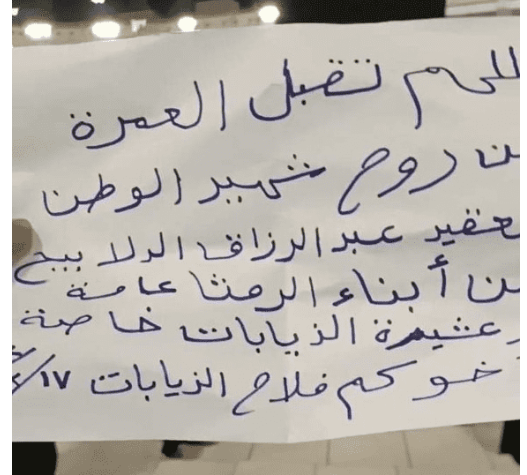 اللهم تقبل العمرة
عن روح شهيد الوطن
العقيد عبد الرزاق الدلابيح
من أبناء الرمثا عامة
وعشيرة الذيابات خاصة
أخوكم فلاح الذيابات ١٧/